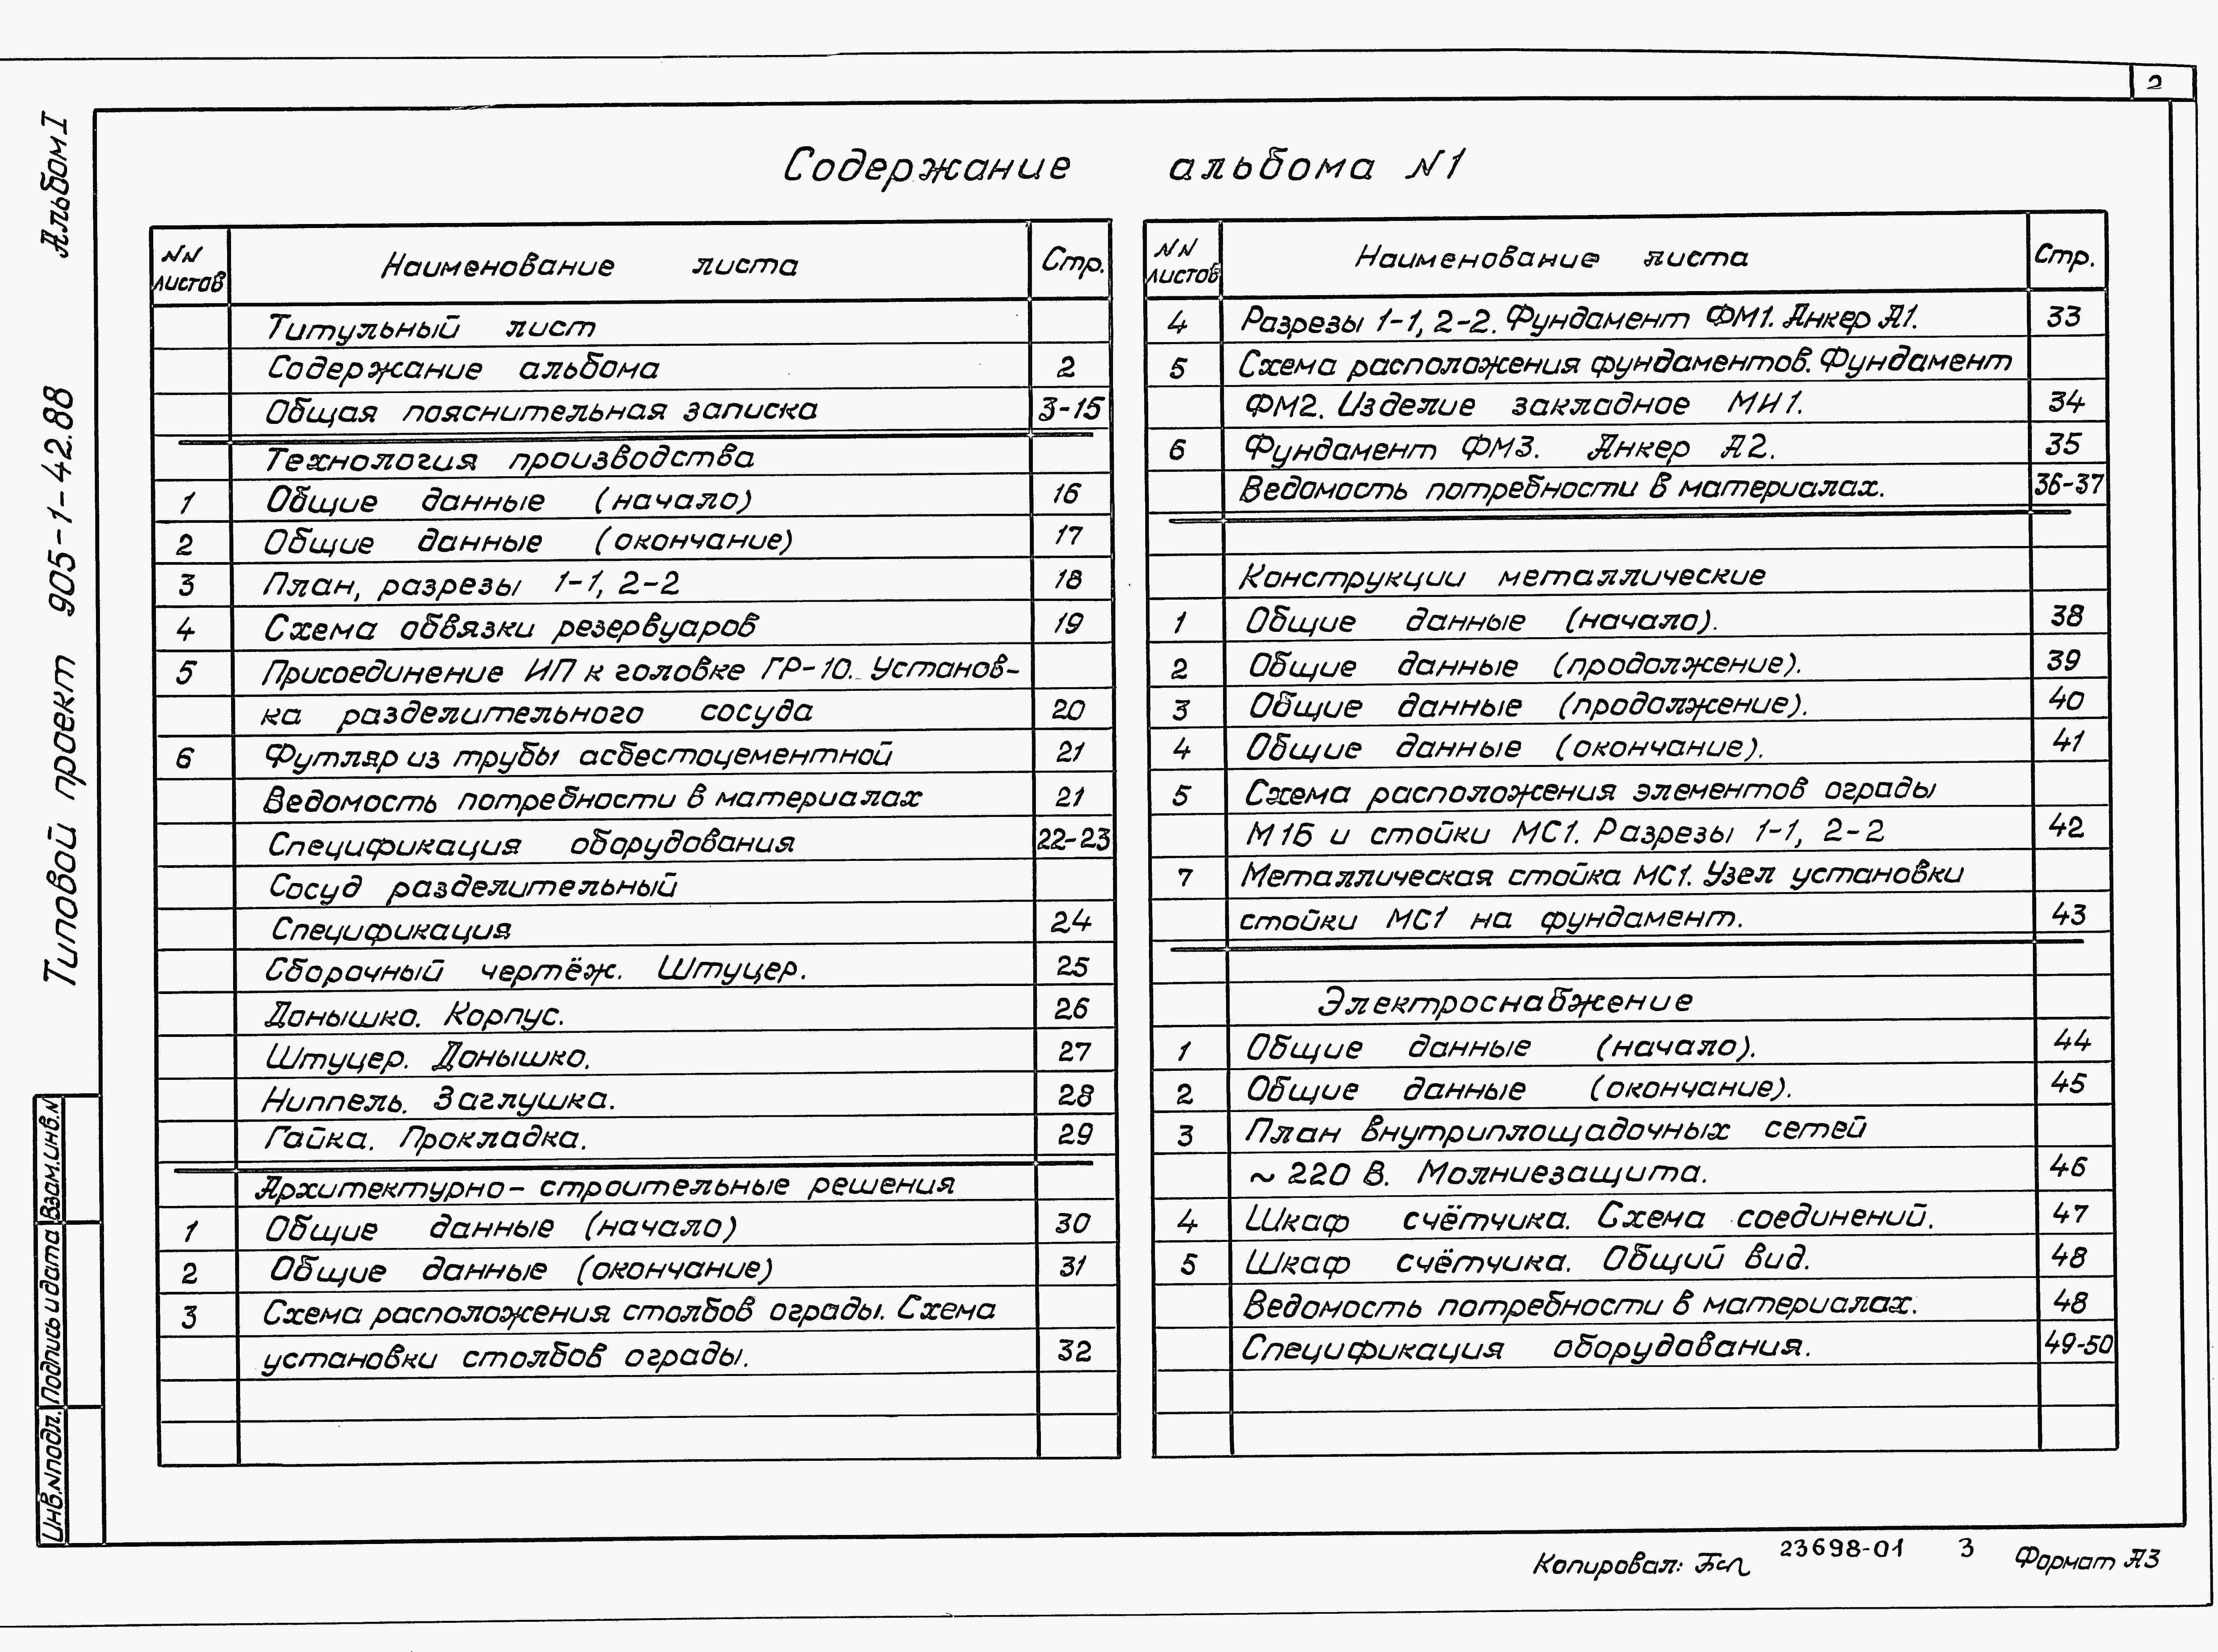 2
Альбом I
Типовой проект 905-1-42.88
Содержание альбома N1
NN листов Наименование листа Стр.
Титульный лист
Содержание альбома 2
Общая пояснительная записка 3-15
Технология производства
1 Общие данные (начало) 16
2 Общие данные (окончание) 17
3 План, разрезы 1-1, 2-2 18
4 Схема обвязки резервуаров 19
5 Присоединение ИП к головке ГР-10. Установ-
ка разделительного сосуда 20
6 Футляр из трубы асбестоцементной 21
Ведомость потребности в материалах 21
Спецификация оборудования 22-23
Сосуд разделительный
Спецификация 24
Сборочный чертёж. Штуцер. 25
Донышко. Корпус. 26
Штуцер. Донышко. 27
Ниппель. Заглушка. 28
Гайка. Прокладка. 29
Архитектурно-строительные решения
1 Общие данные (начало) 30
2 Общие данные (окончание) 31
3 Схема расположения столбов ограды. Схема
установки столбов ограды. 32
NN листов Наименование листа Стр.
4 Разрезы 1-1, 2-2. Фундамент ФМ1. Анкер А1. 33
5 Схема расположения фундаментов. Фундамент
ФМ2. Изделие закладное МИ1. 34
6 Фундамент ФМ3. Анкер А2. 35
Ведомость потребности в материалах. 36-37
Конструкции металлические
1 Общие данные (начало). 38
2 Общие данные (продолжение). 39
3 Общие данные (продолжение). 40
4 Общие данные (окончание). 41
5 Схема расположения элементов ограды
М1Б и стойки МС1. Разрезы 1-1, 2-2 42
7 Металлическая стойка МС1. Узел установки
стойки МС1 на фундамент. 43
Электроснабжение
1 Общие данные (начало). 44
2 Общие данные (окончание). 45
3 План внутриплощадочных сетей
~ 220 В. Молниезащита. 46
4 Шкаф счётчика. Схема соединений. 47
5 Шкаф счётчика. Общий вид. 48
Ведомость потребности в материалах. 48
Спецификация оборудования. 49-50
Инв.N подл. Подпись и дата Взам.инв.N
Копировал: 23698-01 3 Формат А3